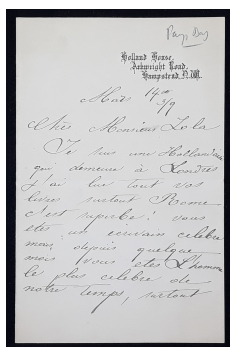 Pays Bas
Holland House,
Arkwright Road,
Hampstead, N.W.
Mars 14
Chèr Monsieur Zola
Je suis une Hollandaise
qui demeure à Londres
j'ai lue tout vos
livres surtout Rome
c'est superbe! vous
etes un ecrivain celebre
mais depuis quelque
mois vous etes L'homme
le plus celebre de
notre temps, surtout